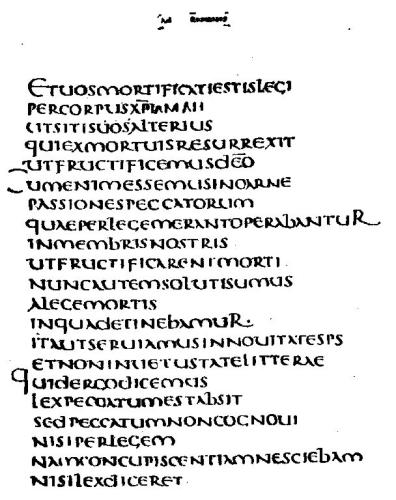 AD ROMANOS
ETUOSMORTIFICATIESTISLEGI
PERCORPUSXPIAMAII
UTSITISUOSALTERIUS
QUIEXMORTUISRESURREXIT
UTFRUCTIFICEMUSDEO
CUMENIMESSEMUSINCARNE
PASSIONESPECCATORUM
QUAEPERLEGEMERANTOPERABANTUR
INMEMBRISNOSTRIS
UTFRUCTIFICARENTMORTI
NUNCAUTEMSOLUTISUMUS
ALEGEMORTIS
INQUADETINEBAMUR.
ITAUTSERUIAMUSINNOUITATESPS
ETNONINUETUSTATELITTERAE
QUIDERGODICEMUS
LEXPECCATUMESTABSIT
SEDPECCATUMNONCOGNOUI
NISIPERLEGEM
NAMCONCUPISCENTIAMNESCIEBAM
NISILEXDICERET